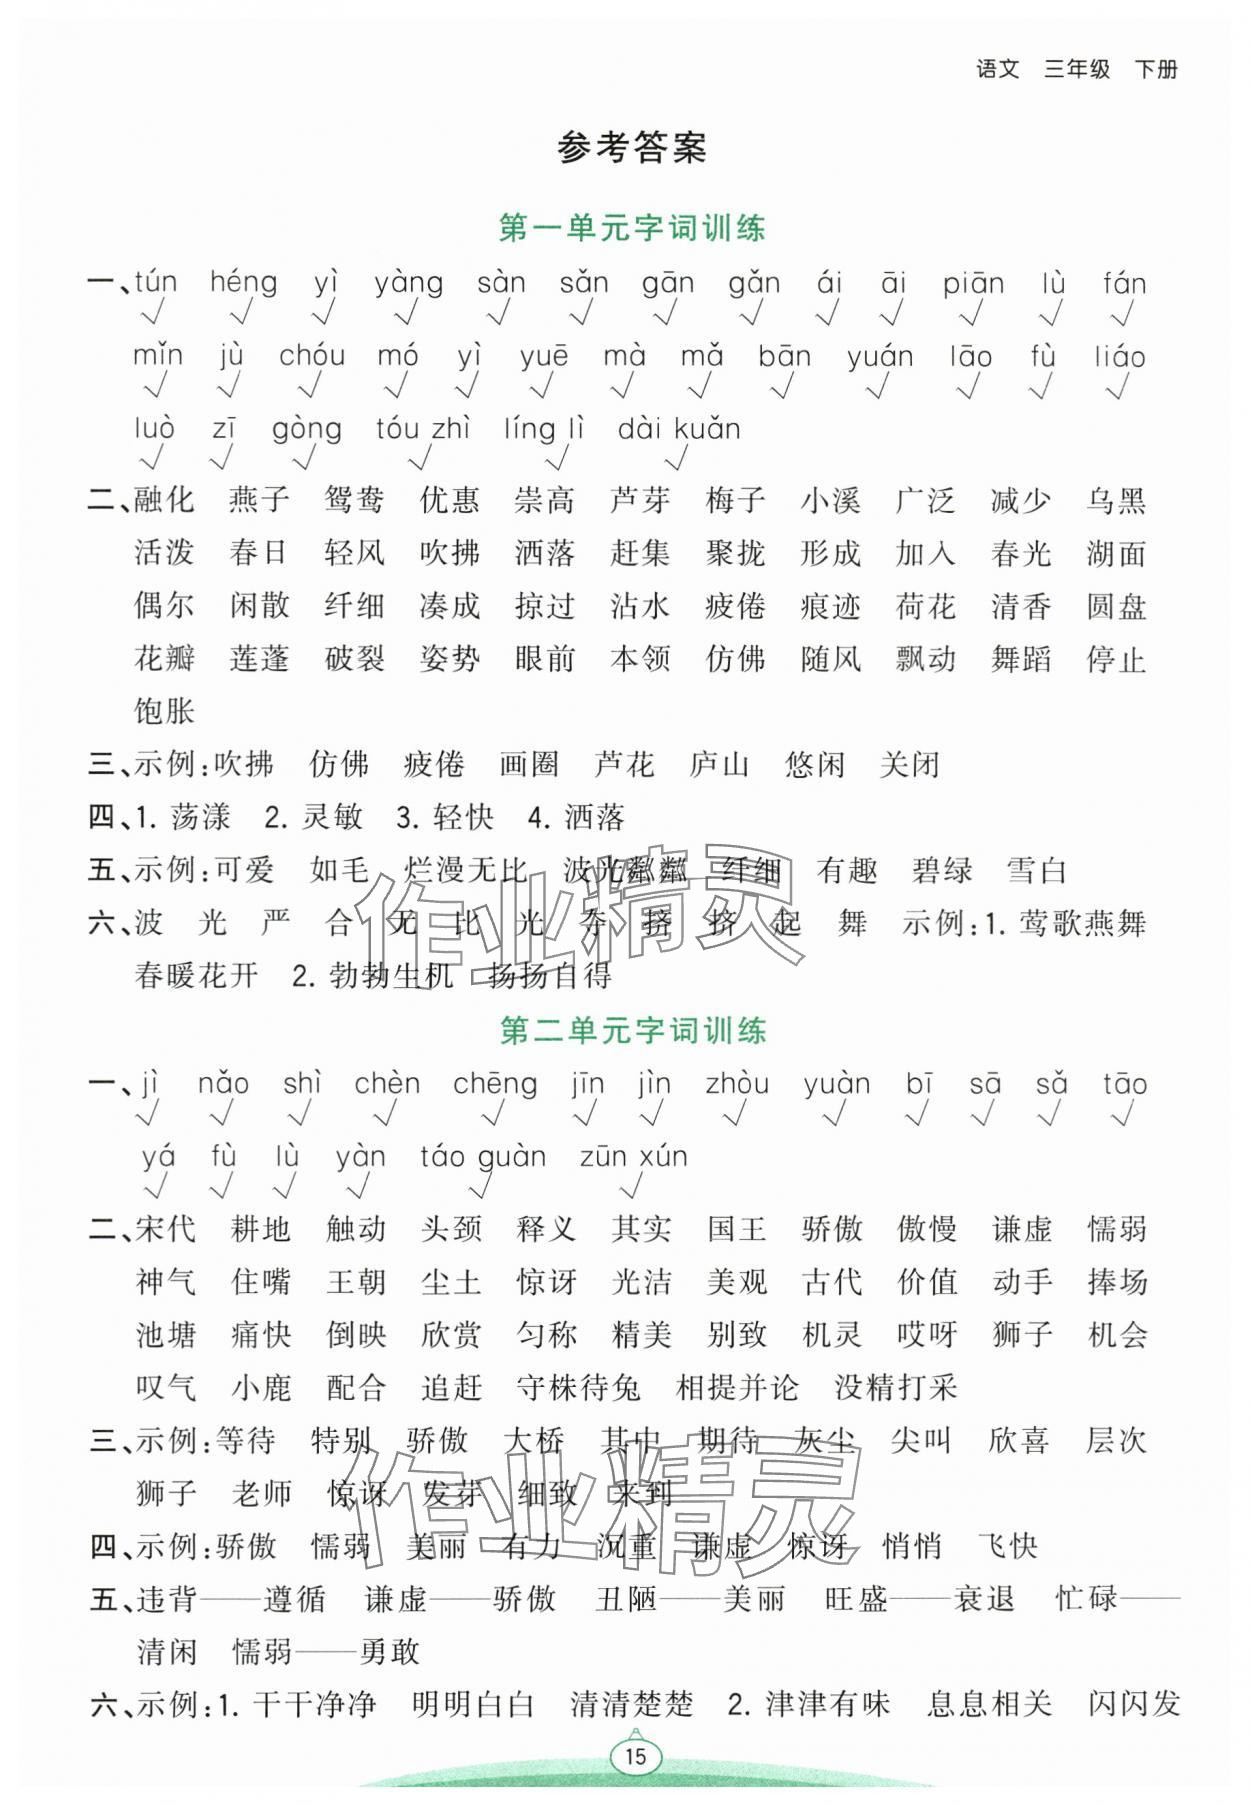 语文 三年级 下册
参考答案
第一单元字词训练
一、tún héng yì yàng sàn sǎn gān gǎn ái āi piān lù fán
√ √ √ √ √ √ √ √ √ √ √ √ √
mǐn jù chóu mó yì yuē mà mǎ bān yuán lāo fù liáo
√ √ √ √ √ √ √ √ √ √ √ √ √
luò zī gòng tóu zhì líng lì dài kuǎn
√ √ √ √ √ √
二、融化 燕子 鸳鸯 优惠 崇高 芦芽 梅子 小溪 广泛 减少 乌黑
活泼 春日 轻风 吹拂 洒落 赶集 聚拢 形成 加入 春光 湖面
偶尔 闲散 纤细 凑成 掠过 沾水 疲倦 痕迹 荷花 清香 圆盘
花瓣 莲蓬 破裂 姿势 眼前 本领 仿佛 随风 飘动 舞蹈 停止
饱胀
三、示例:吹拂 仿佛 疲倦 画圈 芦花 庐山 悠闲 关闭
四、1. 荡漾 2. 灵敏 3. 轻快 4. 洒落
五、示例:可爱 如毛 烂漫无比 波光粼粼 纤细 有趣 碧绿 雪白
六、波 光 严 合 无 比 光 夺 挤 挤 起 舞 示例:1. 莺歌燕舞
春暖花开 2. 勃勃生机 扬扬自得
第二单元字词训练
一、jì nǎo shì chèn chēng jīn jìn zhòu yuàn bī sā sǎ tāo
√ √ √ √ √ √ √ √ √ √ √ √
yá fù lù yàn táo guàn zūn xún
√ √ √ √ √ √
二、宋代 耕地 触动 头颈 释义 其实 国王 骄傲 傲慢 谦虚 懦弱
神气 住嘴 王朝 尘土 惊讶 光洁 美观 古代 价值 动手 捧场
池塘 痛快 倒映 欣赏 匀称 精美 别致 机灵 哎呀 狮子 机会
叹气 小鹿 配合 追赶 守株待兔 相提并论 没精打采
三、示例:等待 特别 骄傲 大桥 其中 期待 灰尘 尖叫 欣喜 层次
狮子 老师 惊讶 发芽 细致 来到
四、示例:骄傲 懦弱 美丽 有力 沉重 谦虚 惊讶 悄悄 飞快
五、违背——遵循 谦虚——骄傲 丑陋——美丽 旺盛——衰退 忙碌——
清闲 懦弱——勇敢
六、示例:1. 干干净净 明明白白 清清楚楚 2. 津津有味 息息相关 闪闪发
15
作业精灵
作业精灵